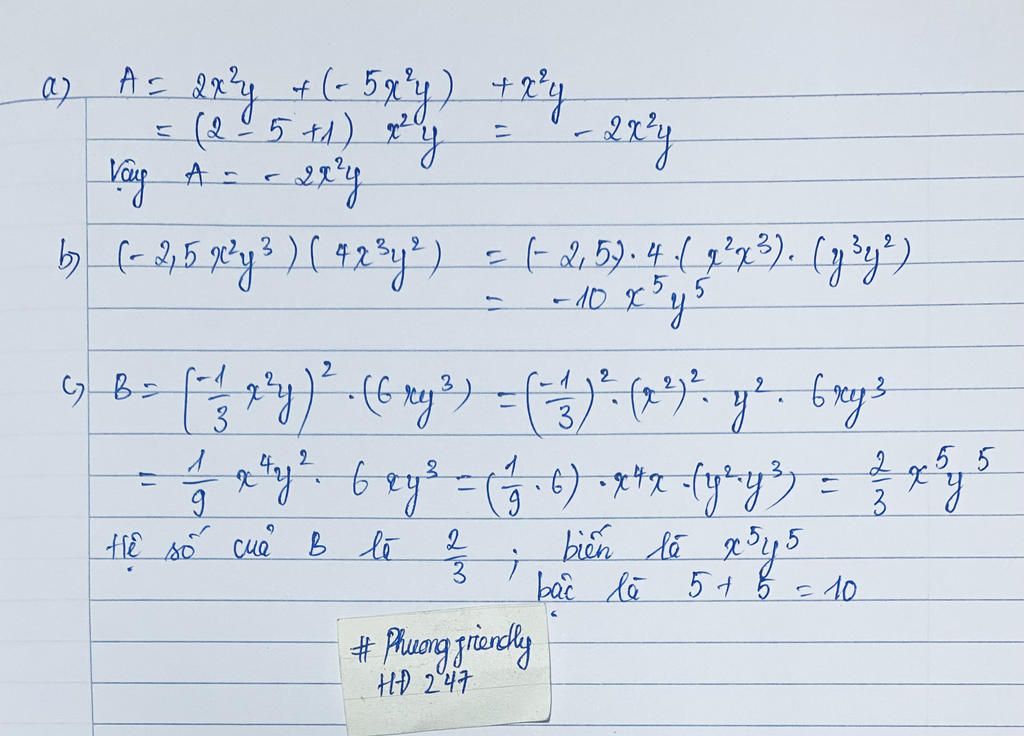 a) A = 2x²y + (- 5x²y) + x²y
= (2 - 5 + 1) x²y = - 2x²y
Vậy A = - 2x²y
b) (- 2,5 x²y³)( 4x³y²) = (- 2,5) · 4 · ( x²x³) · (y³y²)
= -10 x⁵y⁵
c) B = (-1/3 x²y)² · (6xy³) = (-1/3)² · (x²)² · y² · 6xy³
= 1/9 x⁴y² · 6xy³ = (1/9 · 6) · x⁴x · (y² · y³) = 2/3 x⁵y⁵
Hệ số của B là 2/3 ; biến là x⁵y⁵
bậc là 5 + 5 = 10
# Phuong friendly
HĐ 247